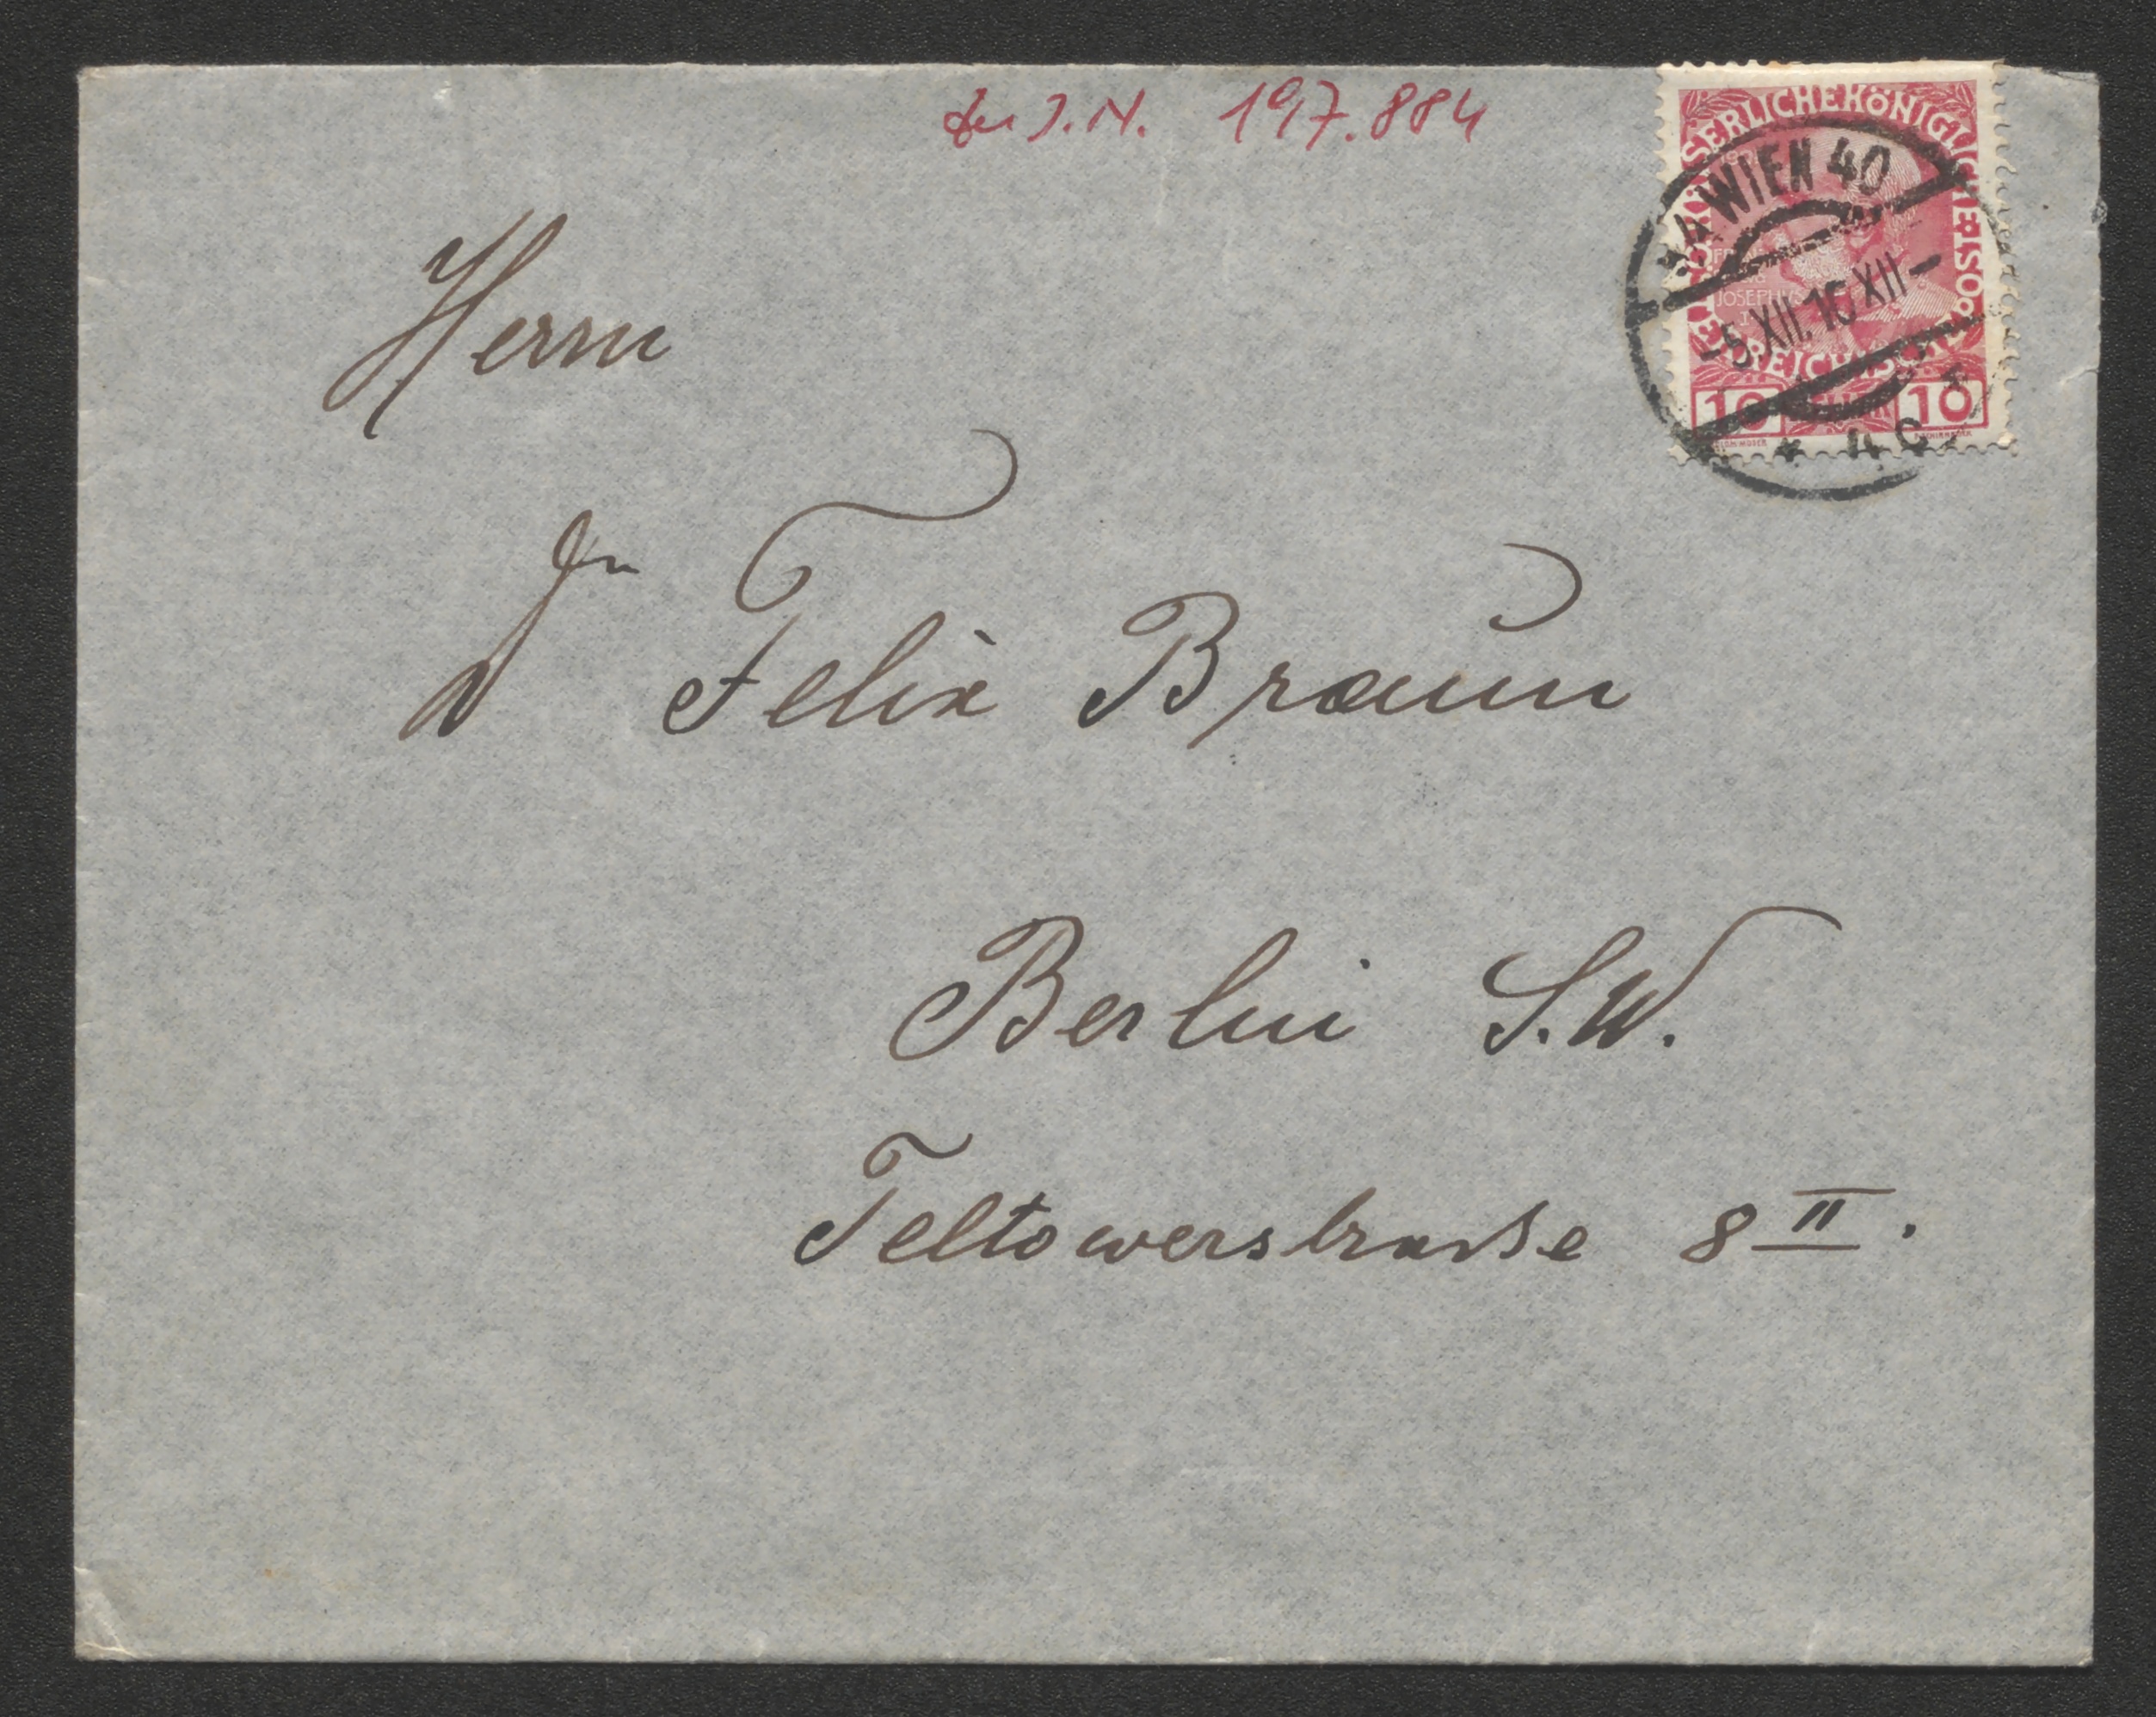 Zu I.N. 197.884
KAISERLICHE KÖNIGLICHE
WIEN 40
5.XII.10 XII
JOSEPHUS
10 10
Herrn
Dr Felix Braun
Berlin S.W.
Teltowerstrasse 8 II.